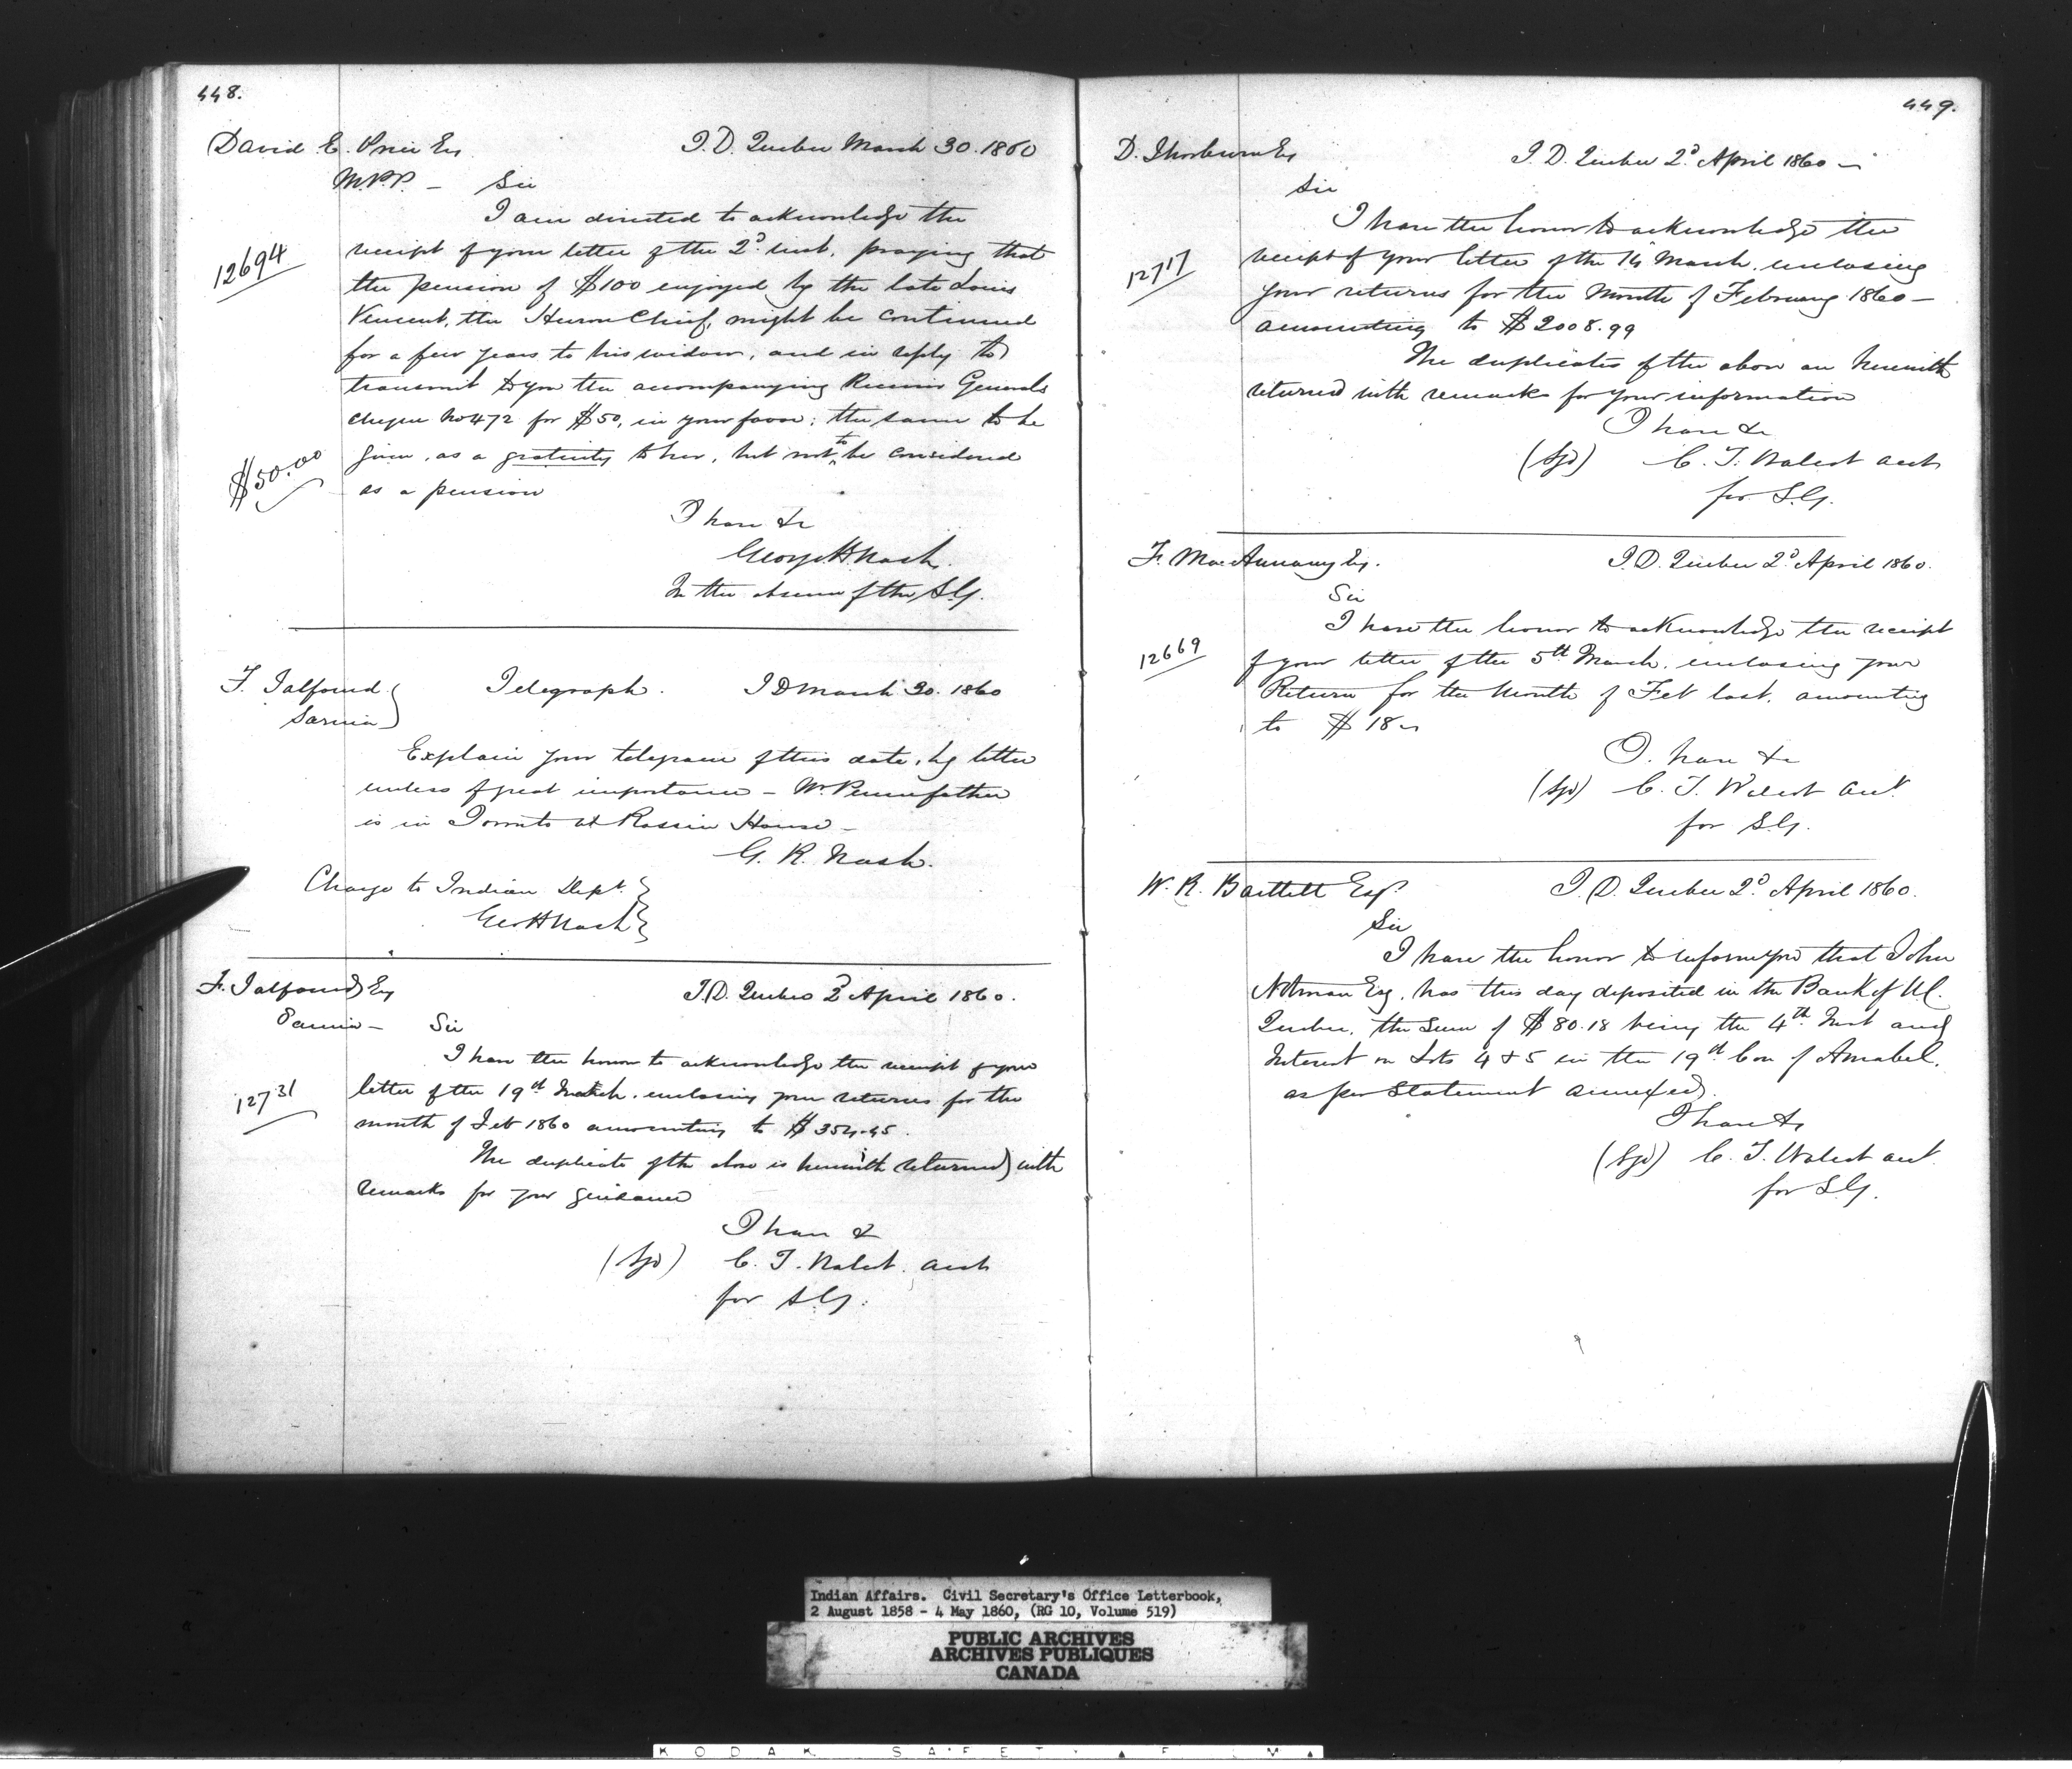 448.
David E. Price Esq
I.D. Quebec March 30. 1860
M.P.P. – Sir
I am directed to acknowledge the
12694
receipt of your letter of the 2d inst. praying that
the pension of $100 enjoyed by the late Louis
Vincent, the Huron Chief, might be continued
for a few years to his widow, and in reply to
transmit to you the accompanying Receiver Generals
cheque No 472 for $50, in your favor; the same to be
$50.00
given, as a gratuity to her, but not to be considered
as a pension
I have &c
George H. Nash.
In the absence of the S.G.
F. Talfourd
Sarnia
Telegraph. I D March 30. 1860
Explain your telegram of this date, by letter
unless of great importance – Mr Pennefather
is in Toronto at Rossin House –
G. R. Nash.
Charge to Indian Dept.
Geo H Nash
F. Talfourd Esq
I.D. Quebec 2d April 1860.
Sarnia – Sir
I have the honor to acknowledge the receipt of your
12731
letter of the 19th March. enclosing your returns for the
month of Feb 1860 amounting to $354.45.
The duplicate of the above is herewith returned with
remarks for your guidance
I have &
(Sgd) C. T. Walcot. acct
for S.G.
449.
D. Thorburn Esq
I.D. Quebec 2d April 1860 –
Sir
I have the honor to acknowledge the
12717
receipt of your letter of the 14 March. enclosing
your returns for the Month of February 1860 –
amounting to $2008.99
The duplicates of the above are herewith
returned with remarks for your information
I have &c
(Sgd) C. T. Walcot acct
for S.G.
F. MacAnnany Esq.
I.D. Quebec 2d April 1860.
Sir
I have the honor to acknowledge the receipt
12669
of your letter of the 5th March. enclosing your
Return for the Month of Feb last. amounting
to $18
I. have &c
(Sgd) C. T. Walcot acct
for S.G.
W. R. Bartlett Esqr.
I.D. Quebec 2d. April 1860.
Sir
I have the honor to inform you that John
Notman Esq. has this day deposited in the Bank of U.C.
Quebec. the Sum of $80.18 being the 4th Inst and
Interest on Lots 4 & 5 in the 19th Con of Amabel.
as per Statement annexed.
I have &c
(Sgd) C. T. Walcot acct.
for S.G.
Indian Affairs. Civil Secretary's Office Letterbook,
2 August 1858 - 4 May 1860, (RG 10, Volume 519)
PUBLIC ARCHIVES
ARCHIVES PUBLIQUES
CANADA
KODAK SAFETY FILM